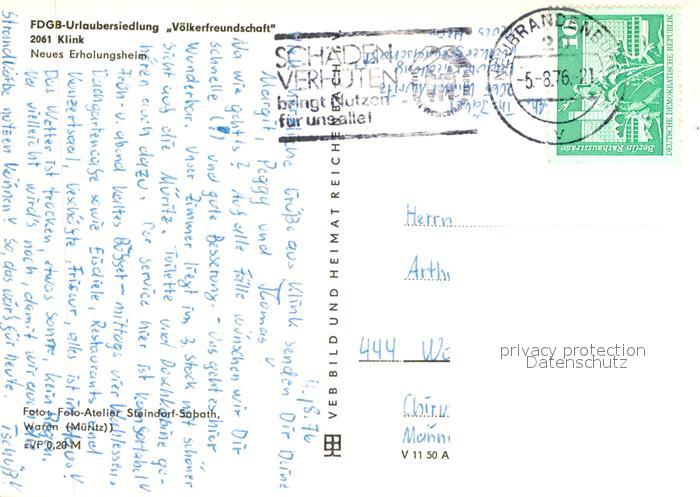 FDGB-Urlaubersiedlung „Völkerfreundschaft"
2061 Klink
Neues Erholungsheim
SCHÄDEN
VERHÜTEN
bringt Nutzen
für uns alle!
NEUBRANDENBURG
-5.-8.76.-21
DEUTSCHE DEMOKRATISCHE REPUBLIK
Berlin-Rathausstraße
4.8.76
liebe Grüße aus Klink senden Dir Deine
Margit, Peggy und Thomas
Na, wie geht's? Auf alle Fälle wünschen wir Dir
schnelle (!) und gute Besserung. - Uns geht es hier
wunderbar. Unser Zimmer liegt im 3. Stock mit schöner
Sicht auf die Müritz. Toilette und Duschkabine ge-
hören auch dazu. Der Service hier ist komfortabel!
Früh u. abend kaltes Büfett - mittags vier Menüessen.
Dachgartencafé sowie Eisdiele, Restaurants und
Konzertsaal, Geschäfte, Friseur, alles ist im Haus!
Das Wetter ist trocken, etwas Sonne, kein Regen.
Na vielleicht wird's noch, damit wir auch die
Strandkörbe nutzen können! So, das wär's für heute. Tschüß!
Herrn
Arth
444 Wo
Chiru
Männ
Foto: Foto-Atelier Steindorf-Sabath,
Waren (Müritz)
E/P 0,20 M
VEB BILD UND HEIMAT REICHENBACH (VOGTL)
V 11 50 A
privacy protection
Datenschutz